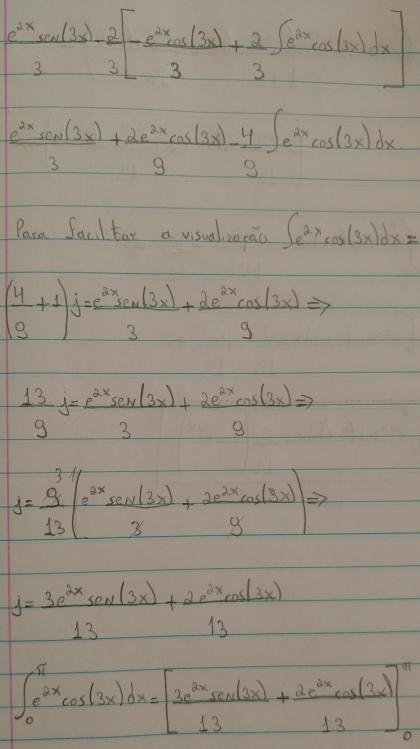 e^{2x} sen(3x)/3 - 2/3 [ -e^{2x} cos(3x)/3 + 2/3 ∫ e^{2x} cos(3x) dx ]
e^{2x} sen(3x)/3 + 2e^{2x} cos(3x)/9 - 4/9 ∫ e^{2x} cos(3x) dx
Para facilitar a visualização ∫ e^{2x} cos(3x) dx =
(4/9 + 1) j = e^{2x} sen(3x)/3 + 2e^{2x} cos(3x)/9 ⇒
13/9 j = e^{2x} sen(3x)/3 + 2e^{2x} cos(3x)/9 ⇒
j = 9/13 ( e^{2x} sen(3x)/3 + 2e^{2x} cos(3x)/9 ) ⇒
j = 3e^{2x} sen(3x)/13 + 2e^{2x} cos(3x)/13
∫_0^π e^{2x} cos(3x) dx = [ 3e^{2x} sen(3x)/13 + 2e^{2x} cos(3x)/13 ]_0^π